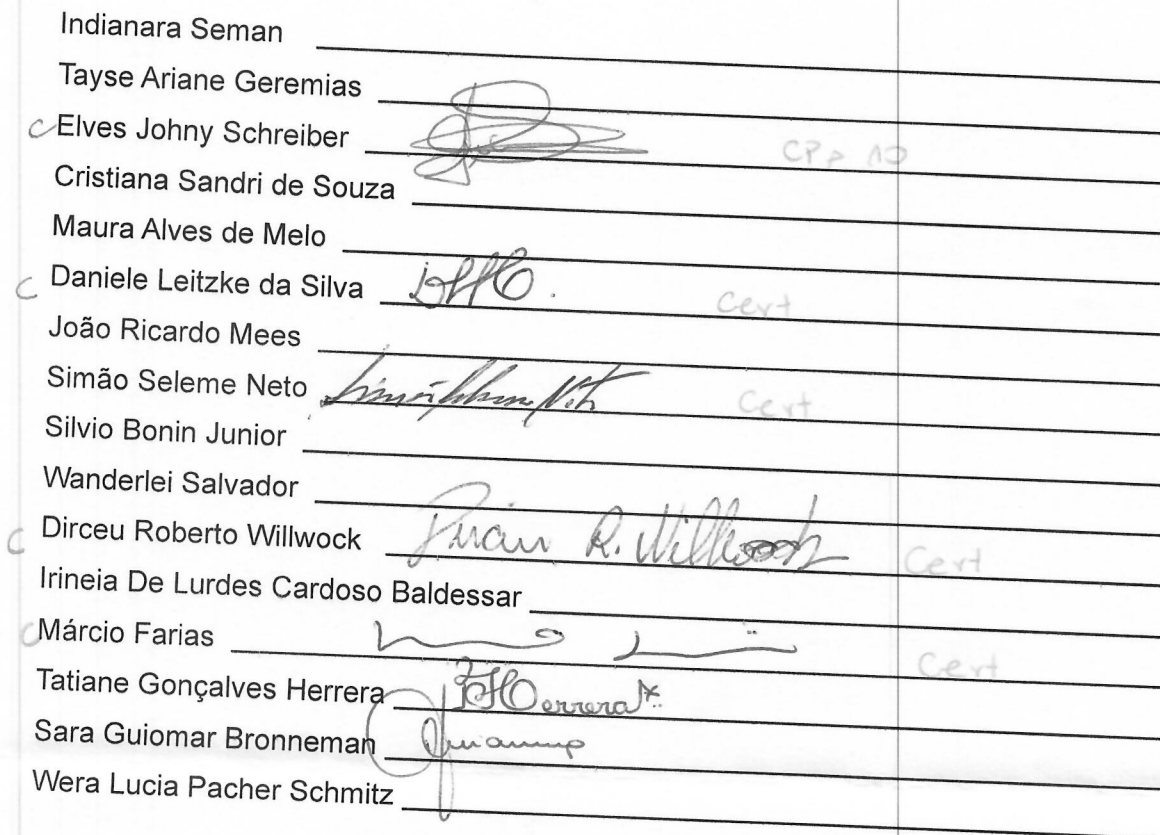 Indianara Seman
Tayse Ariane Geremias
C Elves Johny Schreiber
Cristiana Sandri de Souza
Maura Alves de Melo
C Daniele Leitzke da Silva Cert
João Ricardo Mees
Simão Seleme Neto Cert
Silvio Bonin Junior
Wanderlei Salvador
C Dirceu Roberto Willwock R. Willwock Cert
Irineia De Lurdes Cardoso Baldessar
C Márcio Farias Cert
Tatiane Gonçalves Herrera Herrera
Sara Guiomar Bronneman
Wera Lucia Pacher Schmitz